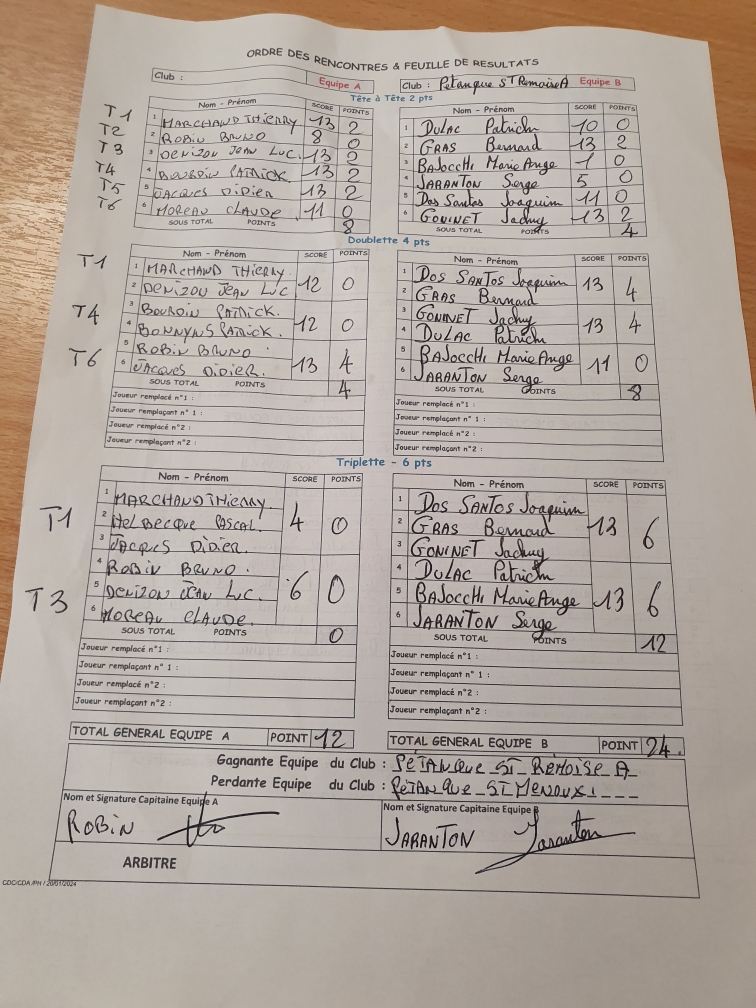 ORDRE DES RENCONTRES & FEUILLE DE RESULTATS
Club : Equipe A Club : Pétanque St Remoise A Equipe B
Tête à Tête 2 pts
Nom - Prénom SCORE POINTS Nom - Prénom SCORE POINTS
T1 1 MARCHAND THIERRY 13 2 1 DULAC Patrick 10 0
T2 2 ROBIN BRUNO 8 0 2 GRAS Bernard 13 2
T3 3 DENIZON JEAN LUC. 13 2 3 BAJOCCHI Marie Ange 1 0
T4 4 BOURDIN PATRICK 13 2 4 JARANTON Serge 5 0
T5 5 JACQUES DIDIER 13 2 5 Dos Santos Joaquim 11 0
T6 6 MOREAU CLAUDE 11 0 6 GONINET Jacky 13 2
SOUS TOTAL POINTS 8 SOUS TOTAL POINTS 4
Doublette 4 pts
Nom - Prénom SCORE POINTS Nom - Prénom SCORE POINTS
T1 1 MARCHAND THIERRY. 12 0 1 DOS SANTOS Joaquim 13 4
2 DENIZON JEAN LUC 2 GRAS Bernard
T4 3 BOURDIN PATRICK. 12 0 3 GONINET Jacky 13 4
4 BONNYNS PATRICK. 4 DULAC Patrick
T6 5 ROBIN BRUNO 13 4 5 BAJOCCHI Marie Ange 11 0
6 JACQUES DIDIER. 6 JARANTON Serge
SOUS TOTAL POINTS 4 SOUS TOTAL POINTS 8
Joueur remplacé n°1 : Joueur remplacé n°1 :
Joueur remplaçant n° 1 : Joueur remplaçant n° 1 :
Joueur remplacé n°2 : Joueur remplacé n°2 :
Joueur remplaçant n°2 : Joueur remplaçant n°2 :
Triplette - 6 pts
Nom - Prénom SCORE POINTS Nom - Prénom SCORE POINTS
T1 1 MARCHAND THIERRY. 4 0 1 DOS SANTOS Joaquim 13 6
2 HELBECQUE PASCAL. 2 GRAS Bernard
3 JACQUES DIDIER. 3 GONINET Jacky
T3 4 ROBIN BRUNO. 6 0 4 DULAC Patrick 13 6
5 DENIZON JEAN LUC. 5 BAJOCCHI Marie Ange
6 MOREAU CLAUDE. 6 JARANTON Serge
SOUS TOTAL POINTS 0 SOUS TOTAL POINTS 12
Joueur remplacé n°1 : Joueur remplacé n°1 :
Joueur remplaçant n° 1 : Joueur remplaçant n° 1 :
Joueur remplacé n°2 : Joueur remplacé n°2 :
Joueur remplaçant n°2 : Joueur remplaçant n°2 :
TOTAL GENERAL EQUIPE A POINT 12 TOTAL GENERAL EQUIPE B POINT 24.
Gagnante Equipe du Club : PETANQUE ST REMOISE A
Perdante Equipe du Club : PETANQUE ST MENOUX 1
Nom et Signature Capitaine Equipe A Nom et Signature Capitaine Equipe B
ROBIN JARANTON Jaranton
ARBITRE
CDC/CDA/PH / 20/01/2024